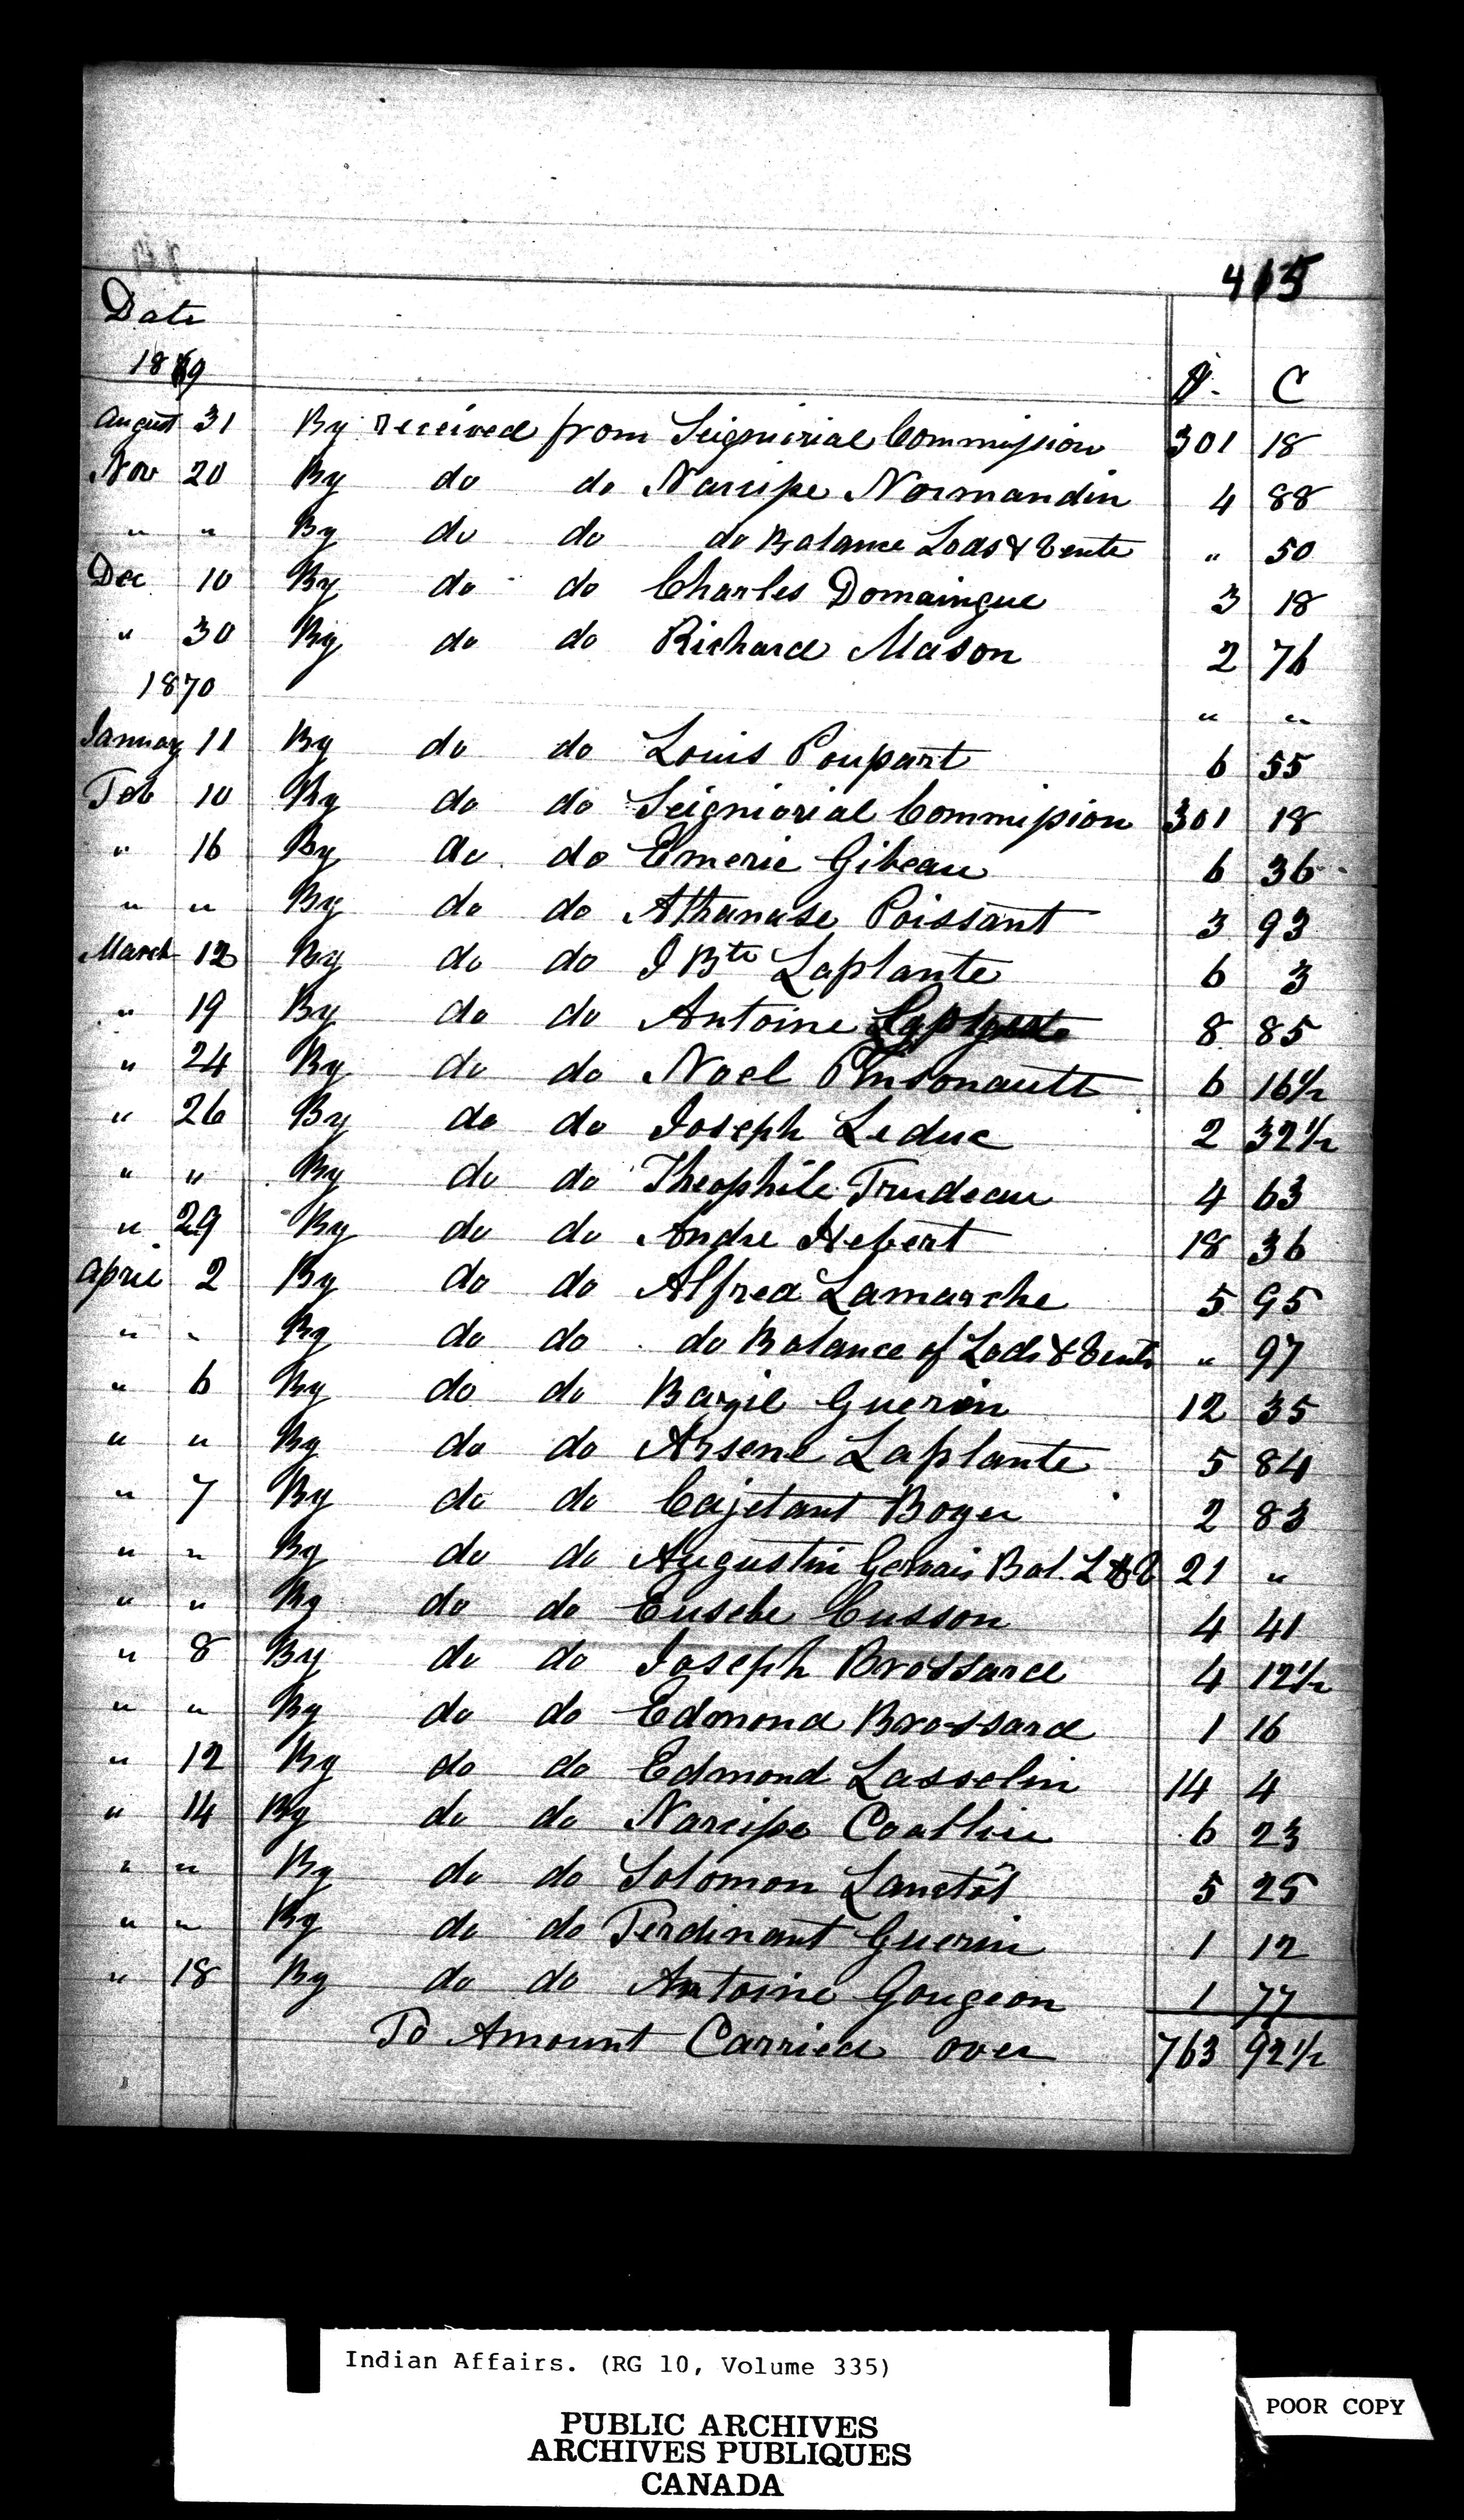 415
Date
1869 $. C
August 31 By received from Seigniorial Commission 301 18
Nov 20 By do do Narcisse Normandin 4 88
" " By do do do Balance Lods & Vente " 50
Dec 10 By do do Charles Domaingue 3 18
" 30 By do do Richard Mason 2 76
1870 " "
January 11 By do do Louis Poupart 6 55
Feb 10 By do do Seigniorial Commission 301 18
" 16 By do do Emerie Gibeau 6 36
" " By do do Athanase Poissant 3 93
March 12 By do do J Bte Laplante 6 3
" 19 By do do Antoine 8 85
" 24 By do do Noel Pinsonault 6 16½
" 26 By do do Joseph Leduc 2 32½
" " By do do Theophile Trudeau 4 63
" 29 By do do Andre Hebert 18 36
April 2 By do do Alfred Lamarche 5 95
" " By do do do Balance of Lods & Vents " 97
" 6 By do do Bazil Guerin 12 35
" " By do do Arsene Laplante 5 84
" 7 By do do Cajetant Boyer 2 83
" " By do do Augustin Gervais Bal. L & V 21 "
" " By do do Eusebe Cusson 4 41
" 8 By do do Joseph Brossard 4 12½
" " By do do Edmond Brossard 1 16
" 12 By do do Edmond Lasselin 14 4
" 14 By do do Narcisse 6 23
" " By do do Solomon Lanctôt 5 25
" " By do do Ferdinant Guerin 1 12
" 18 By do do Antoine Gougeon 1 77
To Amount Carried over 763 92½
Indian Affairs. (RG 10, Volume 335)
POOR COPY
PUBLIC ARCHIVES
ARCHIVES PUBLIQUES
CANADA